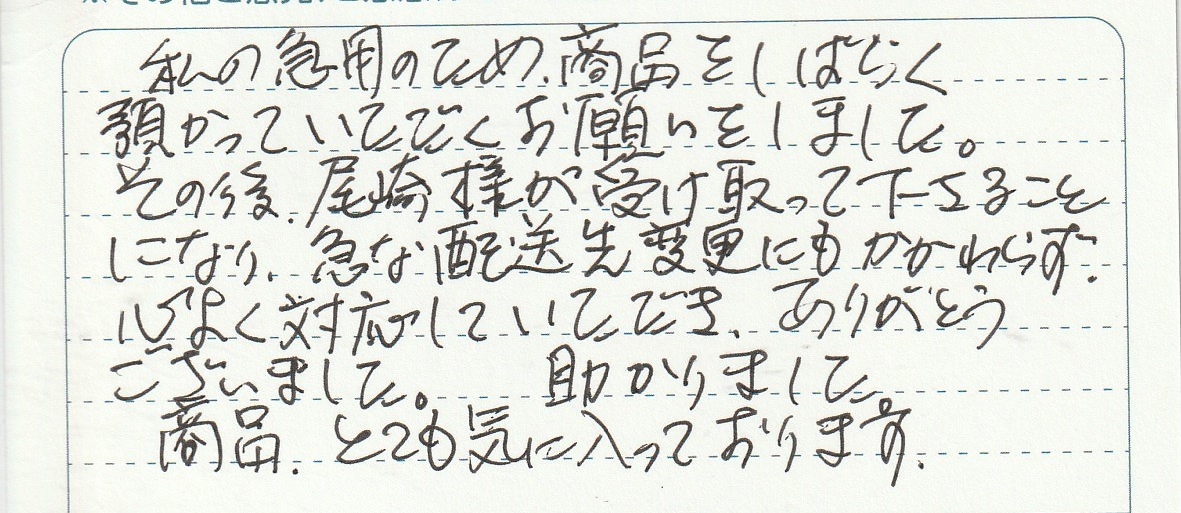 私の急用のため、商品をしばらく
預かっていただくお願いをしました。
その後、尾崎様が受け取って下さること
になり、急な配送先変更にもかかわらず、
心よく対応していただき、ありがとう
ございました。 助かりました。
商品、とても気に入っております。